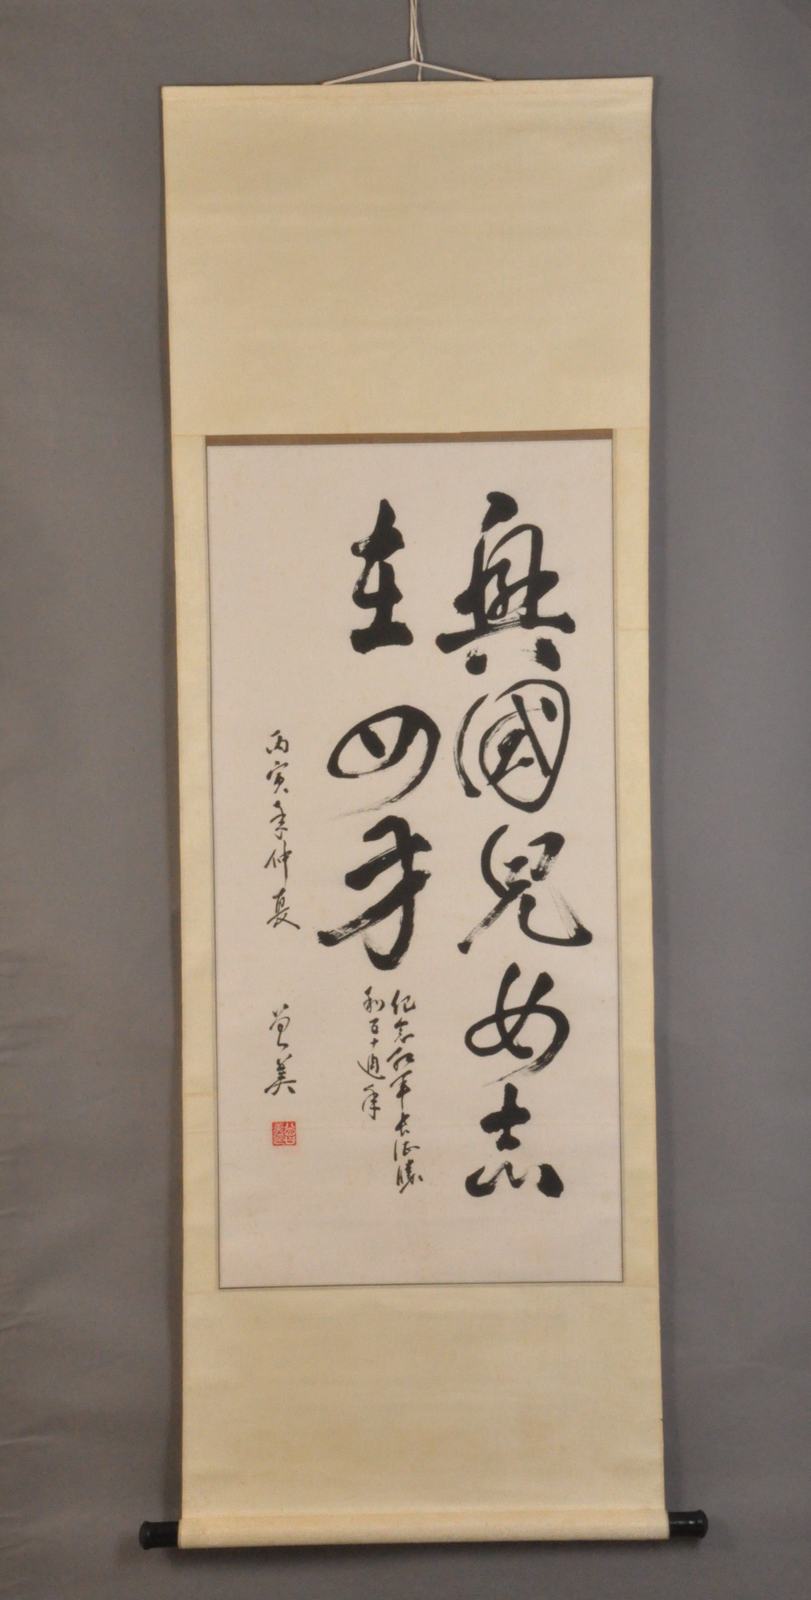 興國兒女志
在四方
紀念紅軍長征勝
利五十週年
丙寅年仲夏
曾美